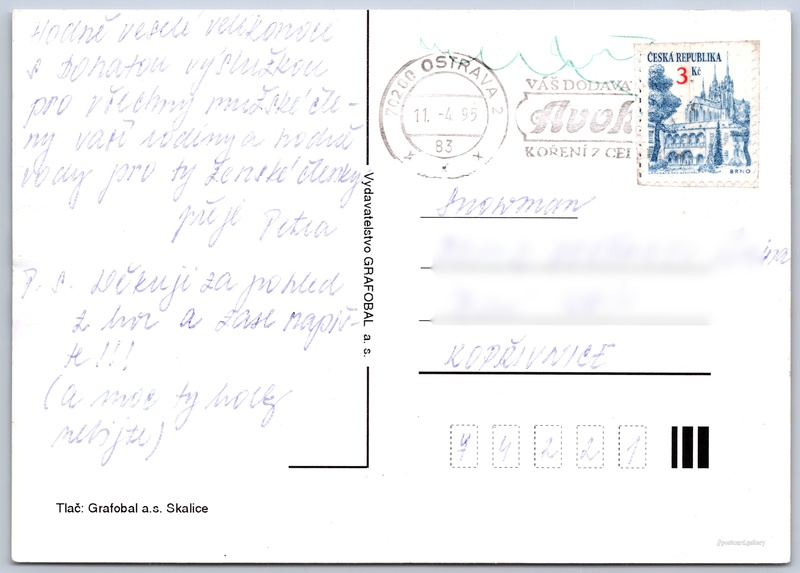 Hodně veselé velikonoce
s bohatou výslužkou
pro všechny mužské čle-
ny vaší rodiny a hodně
vody pro ty ženské členky
přeje Petra
P. S. Děkuji za pohled
z hor a zase napiš-
te!!!
(a moc ty holky
nebijte)
Tlač: Grafobal a.s. Skalice
Vydavatelstvo GRAFOBAL a. s.
70200 OSTRAVA 2
11. -4. 95
83
VÁŠ DODAVA
KOŘENÍ Z CEL
ČESKÁ REPUBLIKA
3 Kč
BRNO
Snowman
KOPŘIVNICE
74221